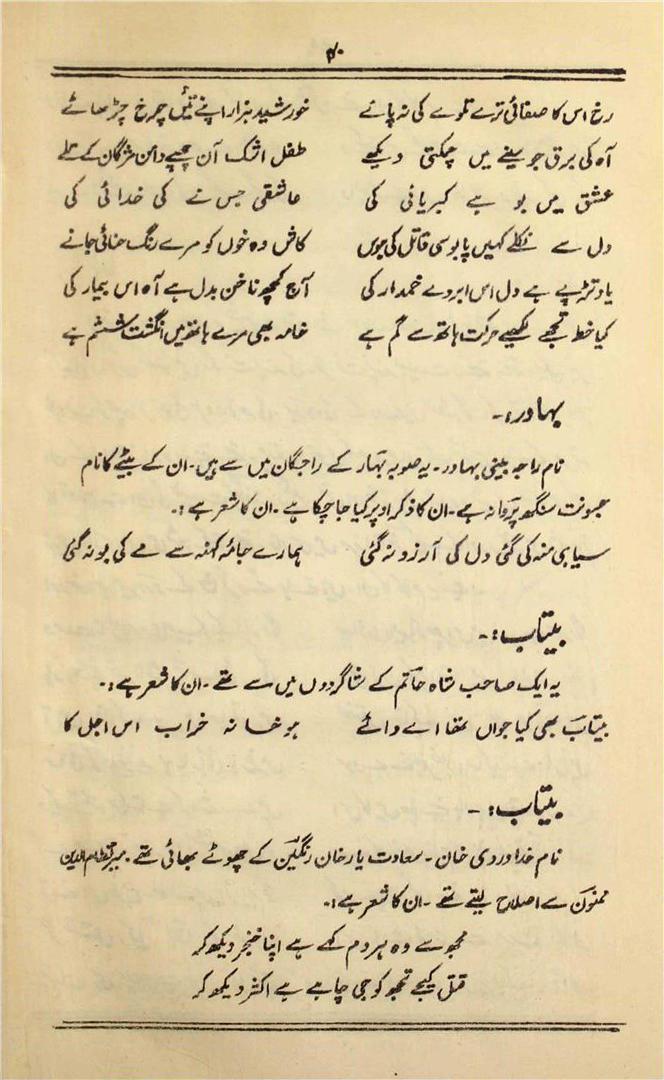 ۴۰
رخ اس کا صفائی ترے تلوے کی نہ پائے خورشید ہزار اپنے تئیں چرخ چڑھائے
آہ کی برق جو سینے میں چمکتی دیکھے طفل اشک آن چھپے دامن مژگاں کے تلے
عشق میں بو ہے کبریائی کی عاشقی جس نے کی خدائی کی
دل سے نکلے کہیں پابوسی قاتل کی ہوس کاش وہ خوں کو مرے رنگ حنائی جانے
یاد تڑپے ہے دل اس ابروے خمدار کی آج کچھ ناخن بدل ہے آہ اس بیمار کی
کیا خط تجھے لکھیے حرکت ہاتھ سے گم ہے خامہ بھی مرے ہاتھ میں انگشت ششم ہے
بہادر:۔
نام راجہ بینی بہادر۔ یہ صوبہ بہار کے راجگان میں سے ہیں۔ ان کے بیٹے کا نام
جسونت سنگھ پروانہ ہے۔ ان کا ذکر اوپر کیا جا چکا ہے۔ ان کا شعر ہے:۔
سیاہی منہ کی گئی دل کی آرزو نہ گئی ہمارے جامۂ کہنہ سے مے کی بو نہ گئی
بیتاب:۔
یہ ایک صاحب شاہ حاتم کے شاگردوں میں سے تھے۔ ان کا شعر ہے:۔
بیتاب بھی کیا جواں تھا اے وائے ہو خانہ خراب اس اجل کا
بیتاب:۔
نام خداوردی خان۔ سعادت یار خان رنگین کے چھوٹے بھائی تھے۔ میر نظام الدین
ممنون سے اصلاح لیتے تھے۔ ان کا شعر ہے:۔
مجھ سے وہ ہر دم کہے ہے اپنا خنجر دیکھ کر
قتل کیجے تجھ کو جی چاہے ہے اکثر دیکھ کر